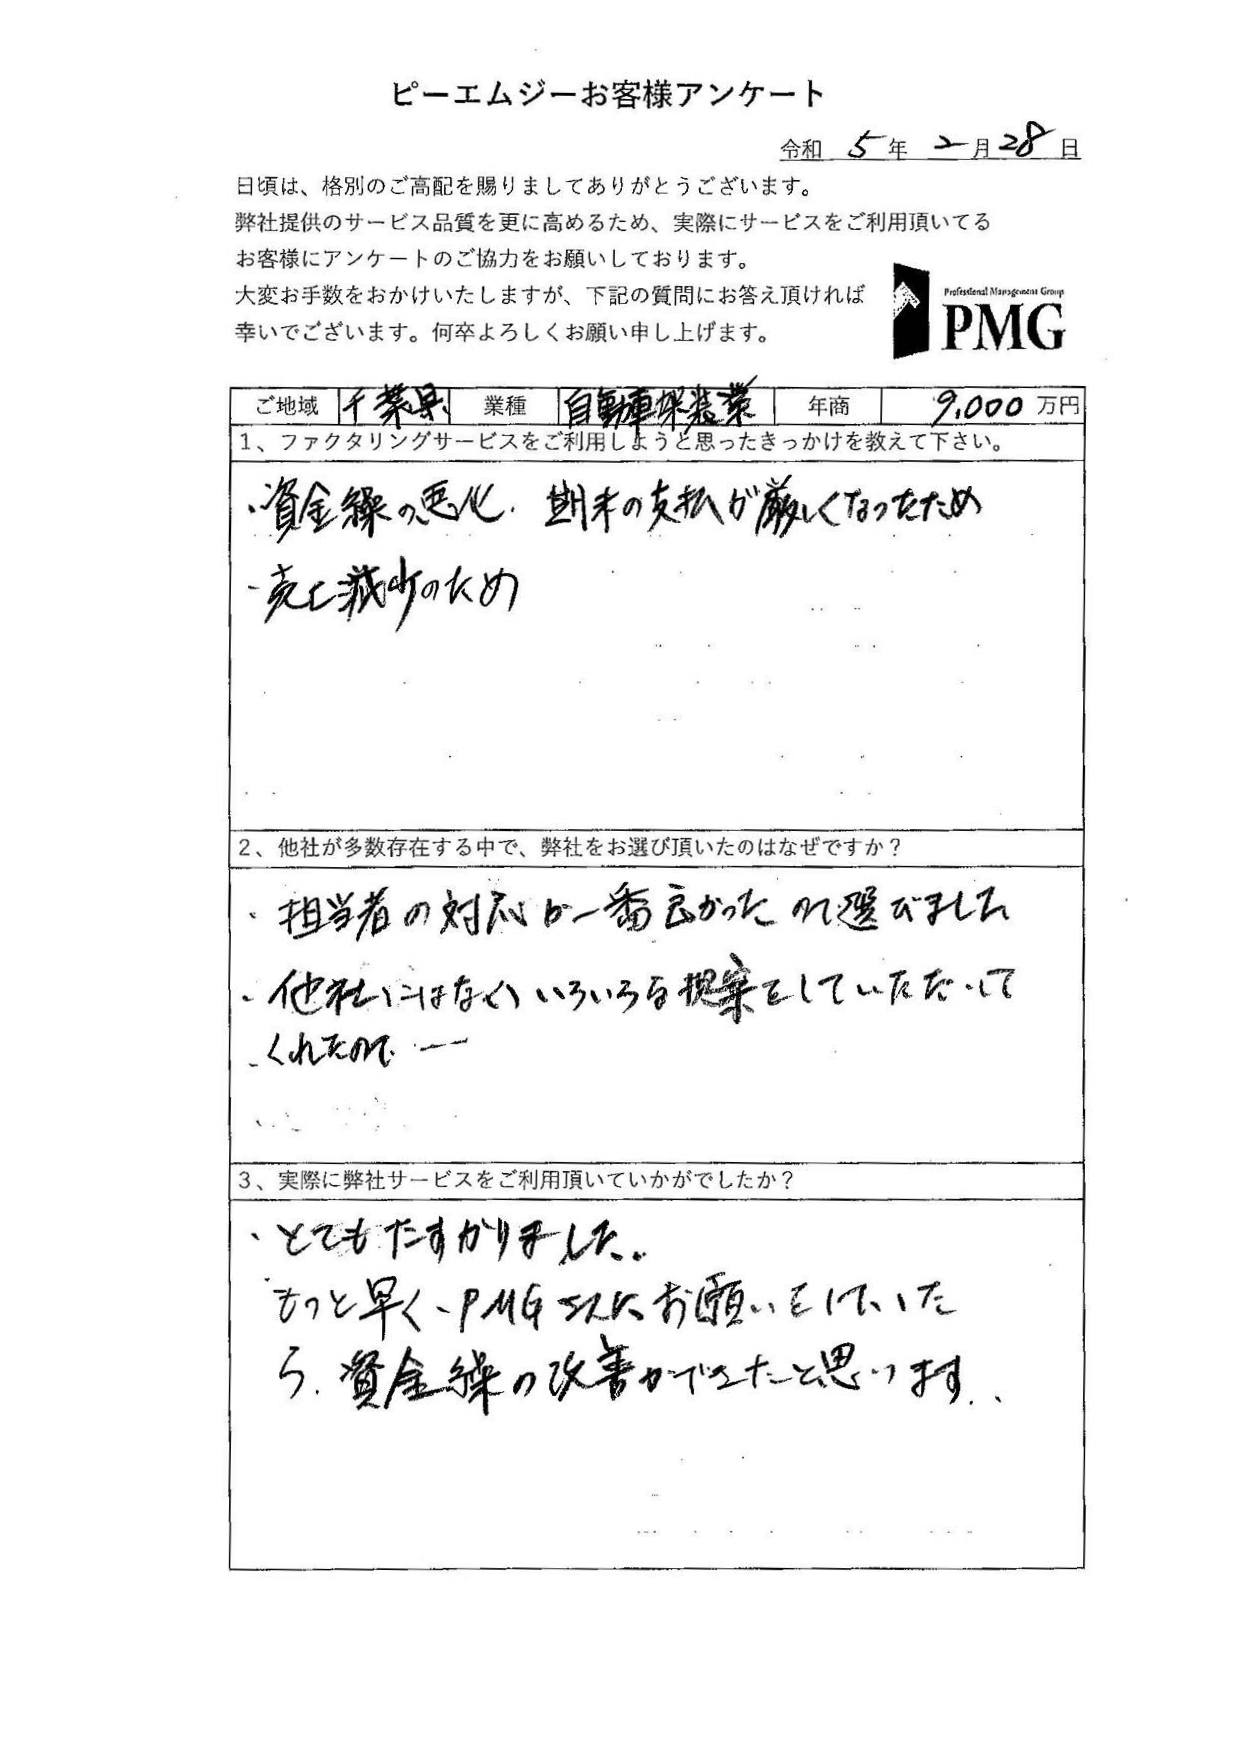 ピーエムジーお客様アンケート
令和 5年 2月28日
日頃は、格別のご高配を賜りましてありがとうございます。
弊社提供のサービス品質を更に高めるため、実際にサービスをご利用頂いてる
お客様にアンケートのご協力をお願いしております。
大変お手数をおかけいたしますが、下記の質問にお答え頂ければ
幸いでございます。何卒よろしくお願い申し上げます。
Professional Management Group
PMG
ご地域 千葉県 業種 自動車塗装業 年商 9,000 万円
1、ファクタリングサービスをご利用しようと思ったきっかけを教えて下さい。
・資金繰の悪化. 期末の支払が厳しくなったため
・売上減少のため
2、他社が多数存在する中で、弊社をお選び頂いたのはなぜですか？
・担当者の対応が一番良かったので選びました
・他社にはないいろいろな提案をしていただいて
くれたので
3、実際に弊社サービスをご利用頂いていかがでしたか？
・とてもたすかりました。
もっと早くPMGさんにお願いをしていた
ら.資金繰の改善ができたと思います.